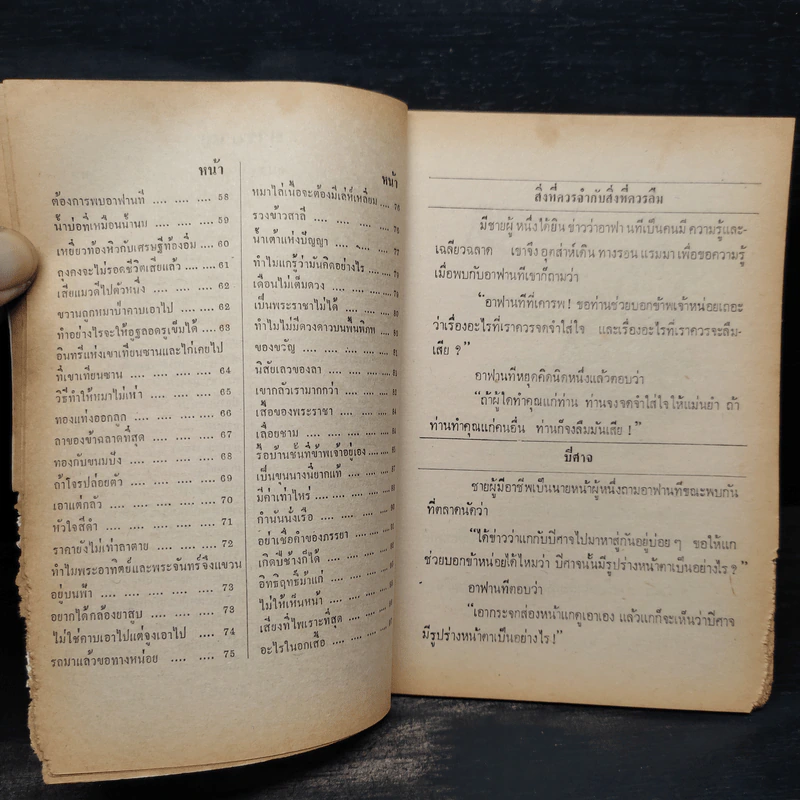 หน้า
ต้องการพบอาฟานที .... .... .... 58
น้ำบ่อที่เหมือนน้ำนม .... .... 59
เหยี่ยวท้องหิวกับเศรษฐีท้องอิ่ม .... 60
ลุงคงจะไม่รอดชีวิตเสียแล้ว .... .... 61
เสียแมวดีไปตัวหนึ่ง .... .... 62
ขวานถูกหมาป่าคาบเอาไป .... .... 62
ทำอย่างไรจะให้อูฐลอดรูเข็มได้ .... 63
อินทรีแห่งเขาเทียนซานและไก่เคยไป
ที่เขาเทียนซาน .... .... .... 64
วิธีทำให้หมาไม่เห่า .... .... 65
ทองแท่งออกลูก .... .... .... 66
ลาของข้าฉลาดที่สุด .... .... 67
ทองกับขนมปัง .... .... .... 68
ถ้าโจรปล่อยตัว .... .... .... 69
เอาแต่กลัว .... .... .... .... 70
หัวใจสีดำ .... .... .... .... 71
ราคายังไม่เท่าลาตาย .... .... 72
ทำไมพระอาทิตย์และพระจันทร์จึงแขวน
อยู่บนฟ้า .... .... .... .... 73
อยากได้กล้องยาสูบ .... .... .... 73
ไม่ใช่คาบเอาไปแต่จูงเอาไป .... 74
รถมาแล้วขอทางหน่อย .... .... .... 75
หน้า
หมาไล่เนื้อจะต้องมีเล่ห์เหลี่ยม .... 76
รวงข้าวสาลี .... .... ....
น้ำเต้าแห่งปัญญา .... .... .... 77
ทำไมแกรู้ว่ามันคิดอย่างไร ....
เดือนไม่เต็มดวง .... .... ....
เป็นพระราชาไม่ได้ .... ....
ทำไมไม่มีดวงดาวบนพื้นพิภพ
ของขวัญ .... .... .... .... 81
นิสัยเลวของลา .... .... ....
เขากลัวเรามากกว่า .... ....
เสื้อของพระราชา .... .... ....
เลื่อยชาม .... .... .... ....
รื้อบ้านชั้นที่ข้าพเจ้าอยู่เอง ....
เป็นขุนนางนี้ยากแท้ .... ....
มีค่าเท่าไหร่ .... .... ....
กำนันนั่งเรือ .... .... ....
อย่าเชื่อคำของภรรยา .... ....
เกิดปีช้างก็ได้ .... .... ....
อิทธิฤทธิ์ม้าแก่ .... .... ....
ไม่ให้เห็นหน้า .... .... ....
เสียงที่ไพเราะที่สุด .... ....
อะไรในอกเสื้อ .... .... ....
สิ่งที่ควรจำกับสิ่งที่ควรลืม
มีชายผู้หนึ่งได้ยินข่าวว่าอาฟานทีเป็นคนมีความรู้และ-
เฉลียวฉลาด เขาจึงอุตส่าห์เดินทางรอนแรมมาเพื่อขอความรู้
เมื่อพบกับอาฟานทีเขาก็ถามว่า
“อาฟานทีที่เคารพ! ขอท่านช่วยบอกข้าพเจ้าหน่อยเถอะ
ว่าเรื่องอะไรที่เราควรจดจำใส่ใจ และเรื่องอะไรที่เราควรจะลืม-
เสีย ?”
อาฟานทีหยุดคิดนิดหนึ่งแล้วตอบว่า
“ถ้าผู้ใดทำคุณแก่ท่าน ท่านจงจดจำใส่ใจให้แม่นยำ ถ้า
ท่านทำคุณแก่คนอื่น ท่านก็จงลืมมันเสีย !”
ปีศาจ
ชายผู้มีอาชีพเป็นนายหน้าผู้หนึ่งถามอาฟานทีขณะพบกัน
ที่ตลาดนัดว่า
“ได้ข่าวว่าแกกับปีศาจไปมาหาสู่กันอยู่บ่อยๆ ขอให้แก
ช่วยบอกข้าหน่อยได้ไหมว่า ปีศาจนั้นมีรูปร่างหน้าตาเป็นอย่างไร ?”
อาฟานทีตอบว่า
“เอากระจกส่องหน้าแกดูเอาเอง แล้วแกก็จะเห็นว่าปีศาจ
มีรูปร่างหน้าตาเป็นอย่างไร!”